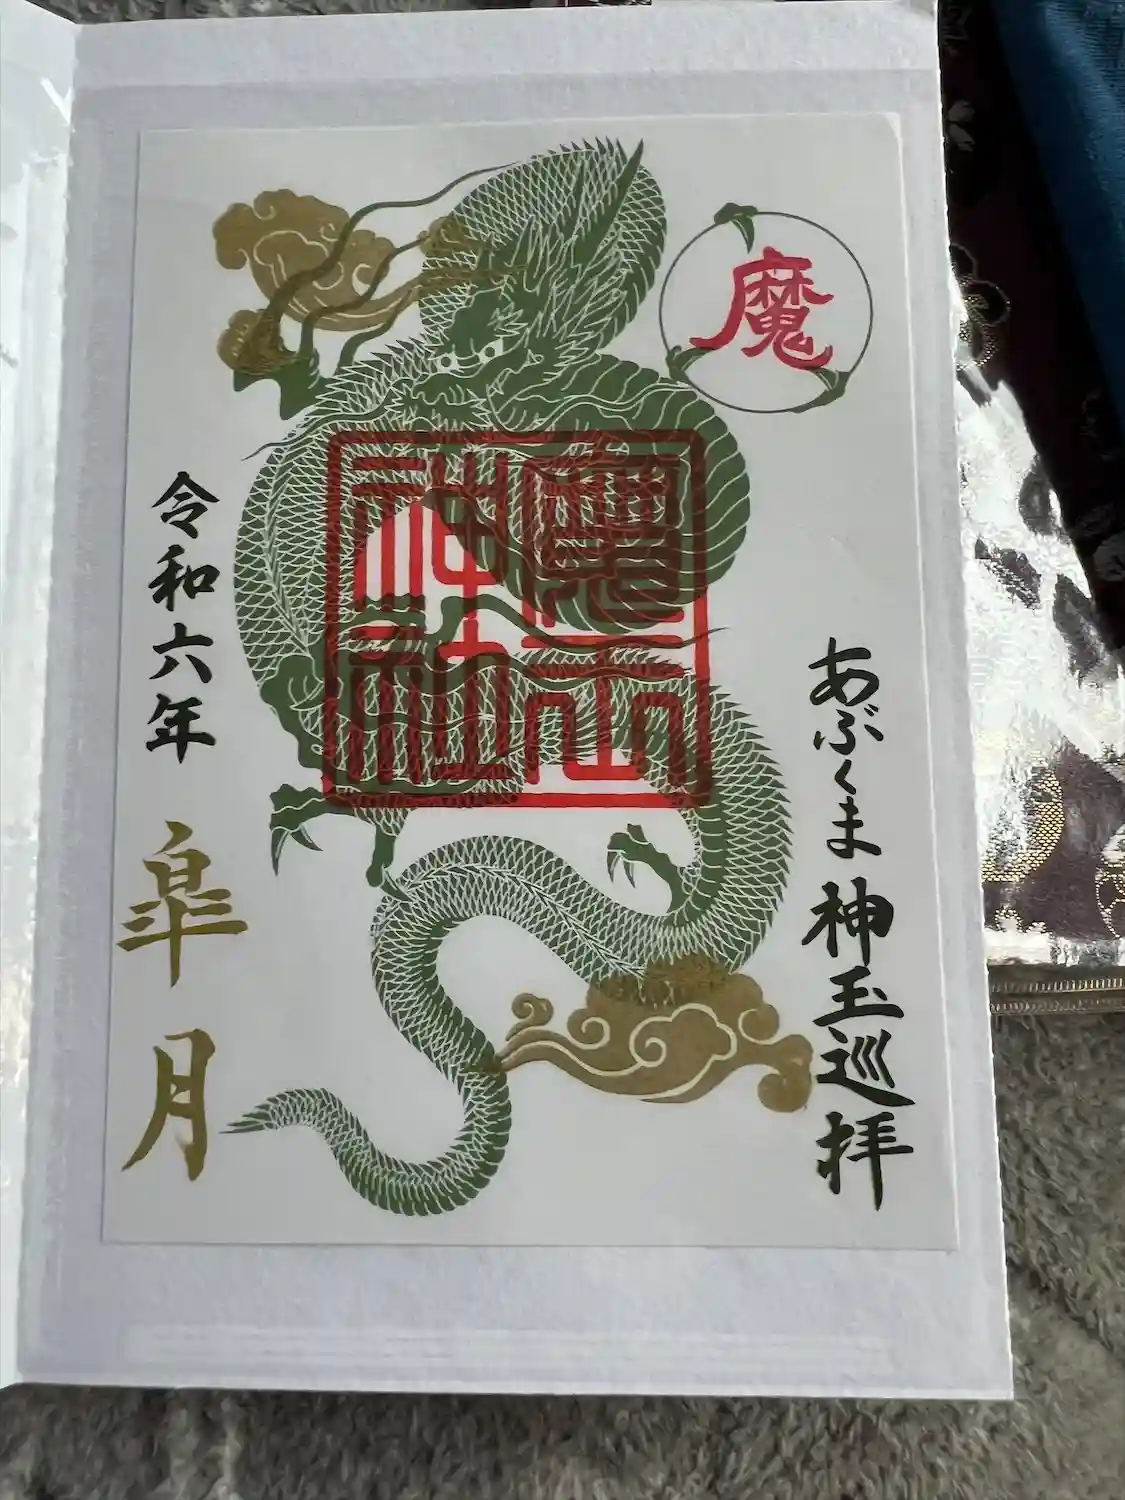 魔
あぶくま神玉巡拝
魔王
神社
令和六年
皐月